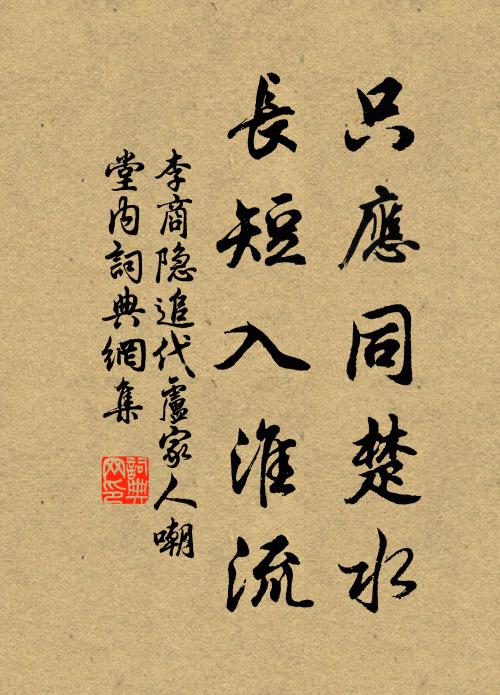 只應同楚水
長短入淮流
李商隐追代盧家人嘲
堂内詞典網集
詞典
网印